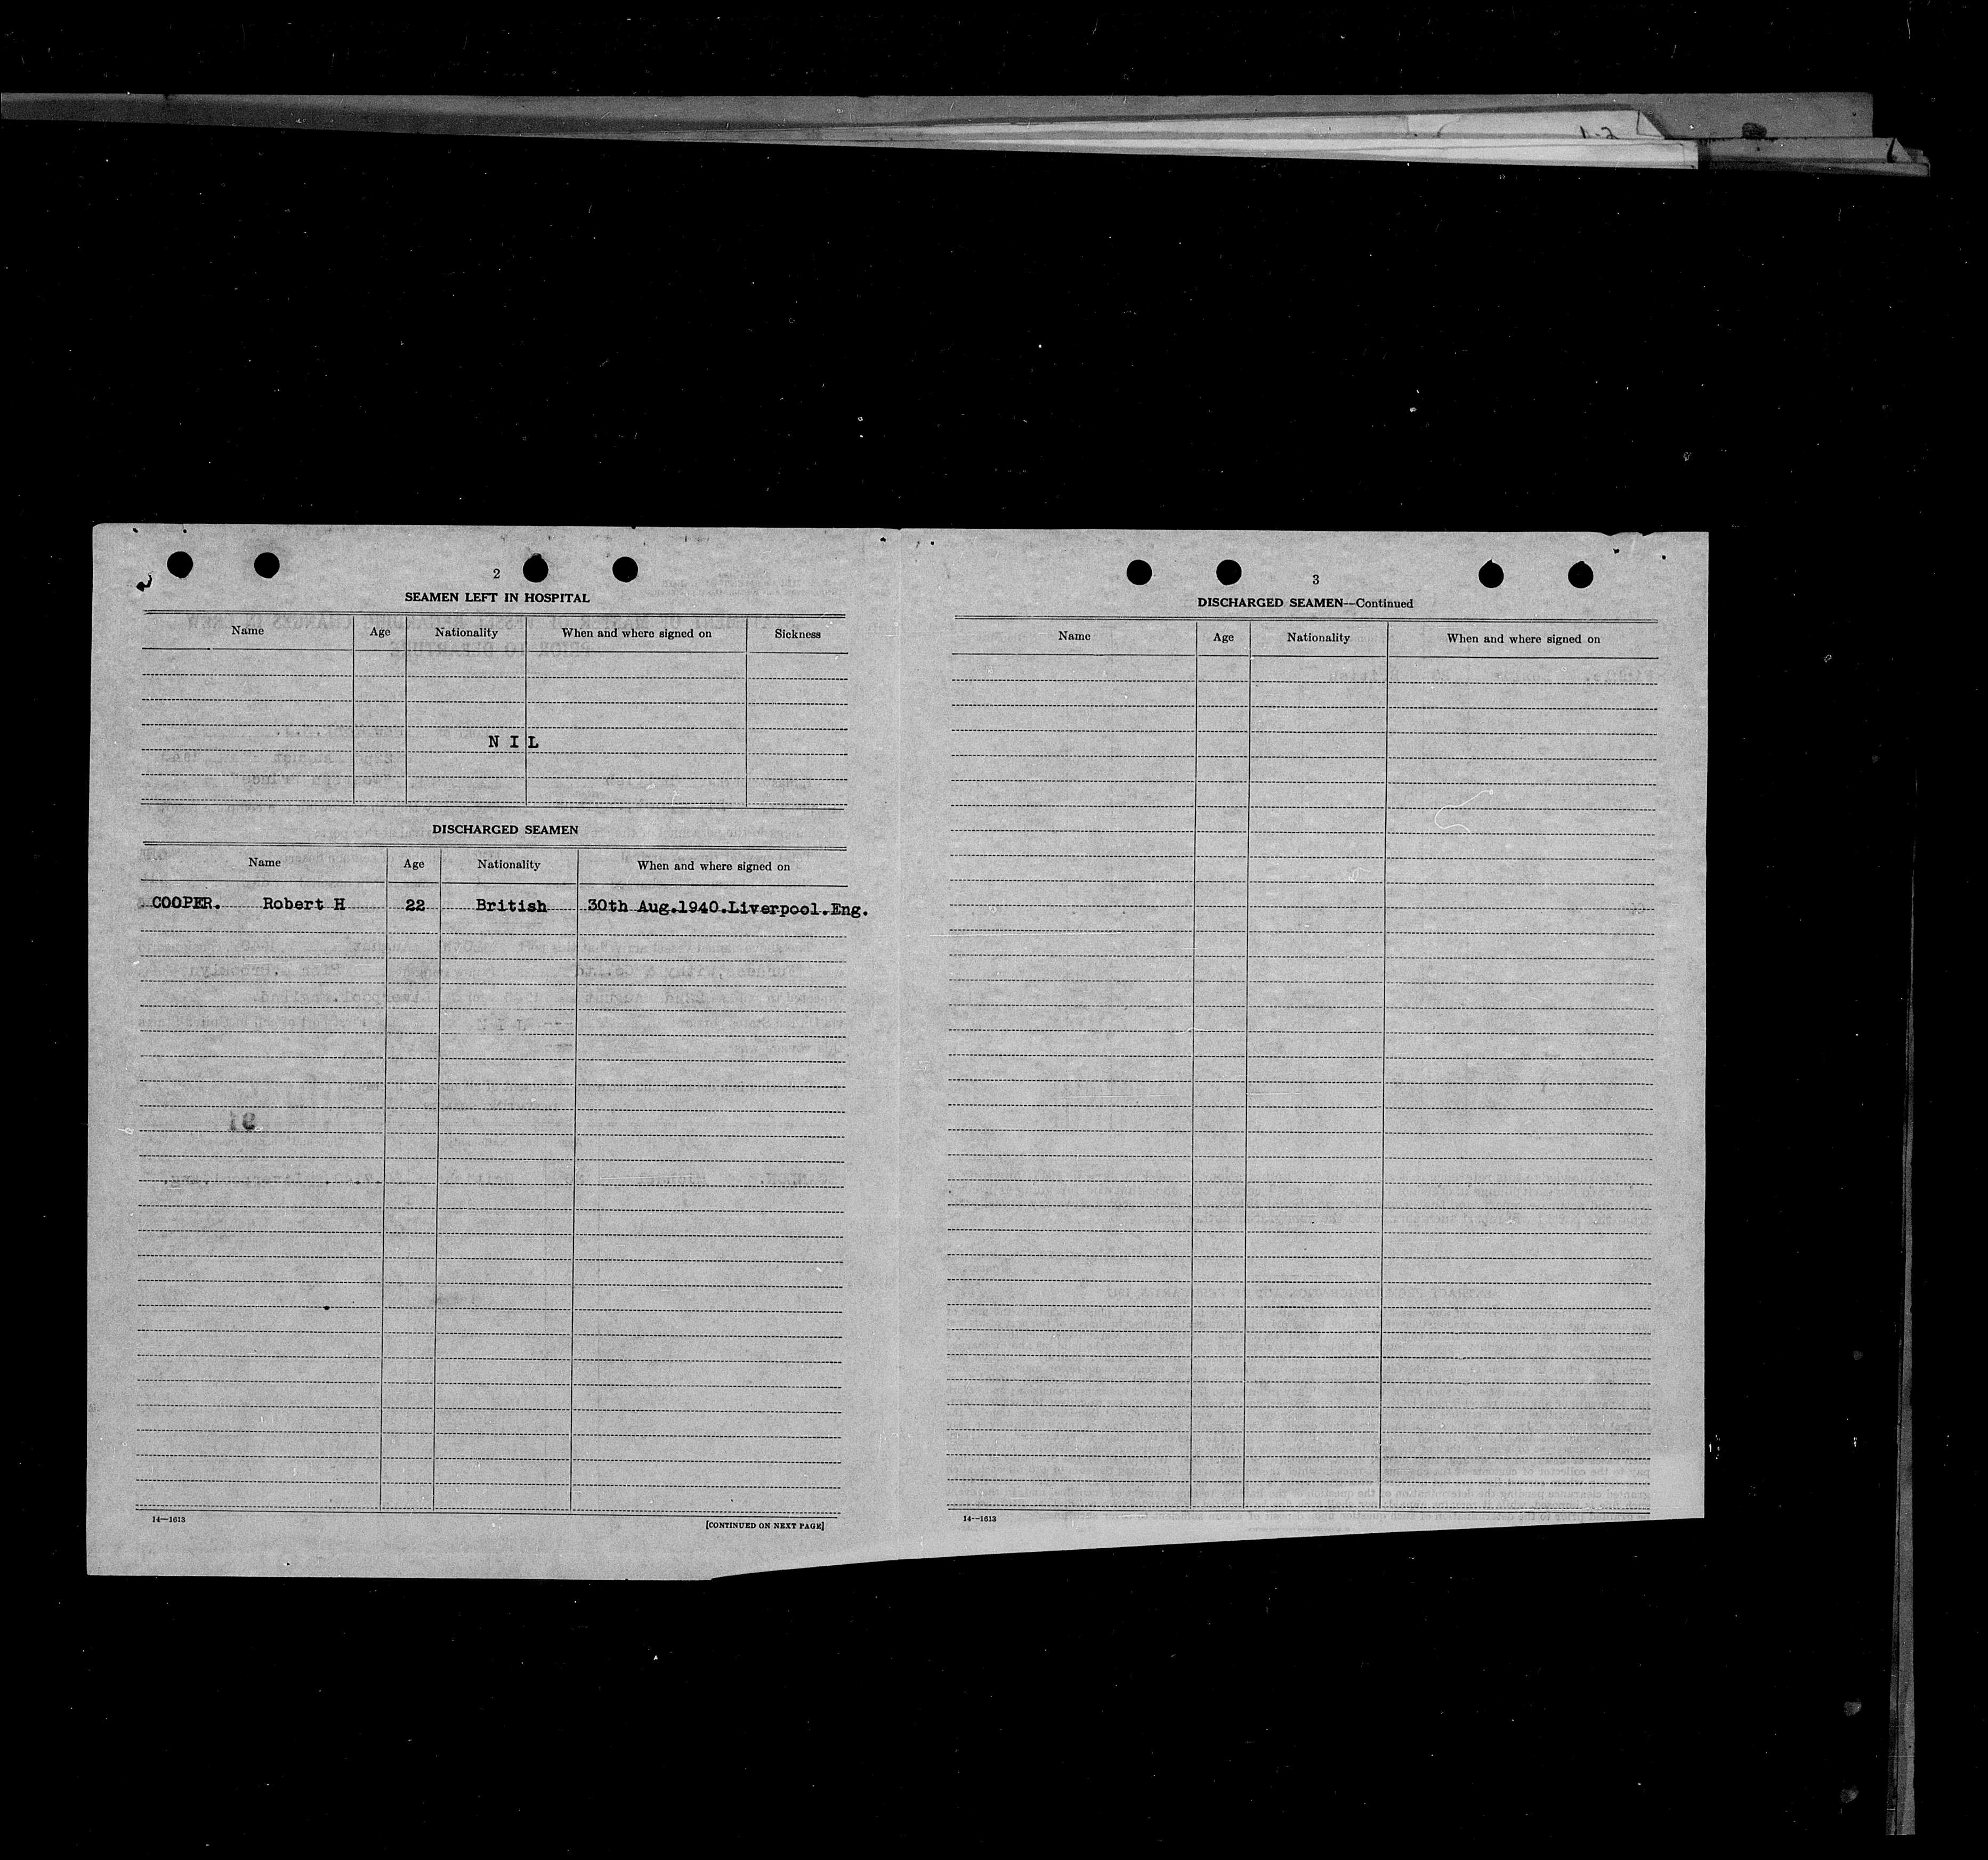 1-2
2
SEAMEN LEFT IN HOSPITAL
Name Age Nationality When and where signed on Sickness
N I L
DISCHARGED SEAMEN
Name Age Nationality When and where signed on
COOPER. Robert H 22 British 30th Aug.1940.Liverpool.Eng.
14—1613
[CONTINUED ON NEXT PAGE]
3
DISCHARGED SEAMEN—Continued
Name Age Nationality When and where signed on
14—1613